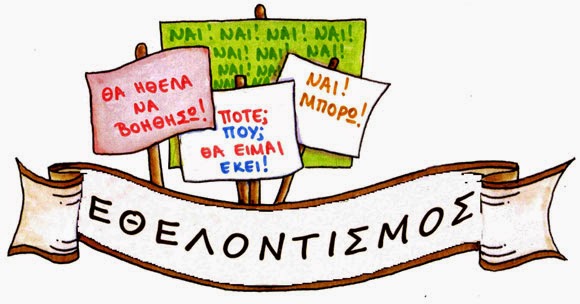 ΝΑΙ! ΝΑΙ! ΝΑΙ! ΝΑΙ!
ΝΑΙ! ΝΑΙ! ΝΑΙ! ΝΑΙ!
ΝΑΙ! ΝΑΙ!
ΘΑ ΗΘΕΛΑ
ΝΑ
ΒΟΗΘΗΣΩ!
ΠΟΤΕ;
ΠΟΥ;
ΘΑ ΕΙΜΑΙ
ΕΚΕΙ!
ΝΑΙ!
ΜΠΟΡΩ!
ΕΘΕΛΟΝΤΙΣΜΟΣ